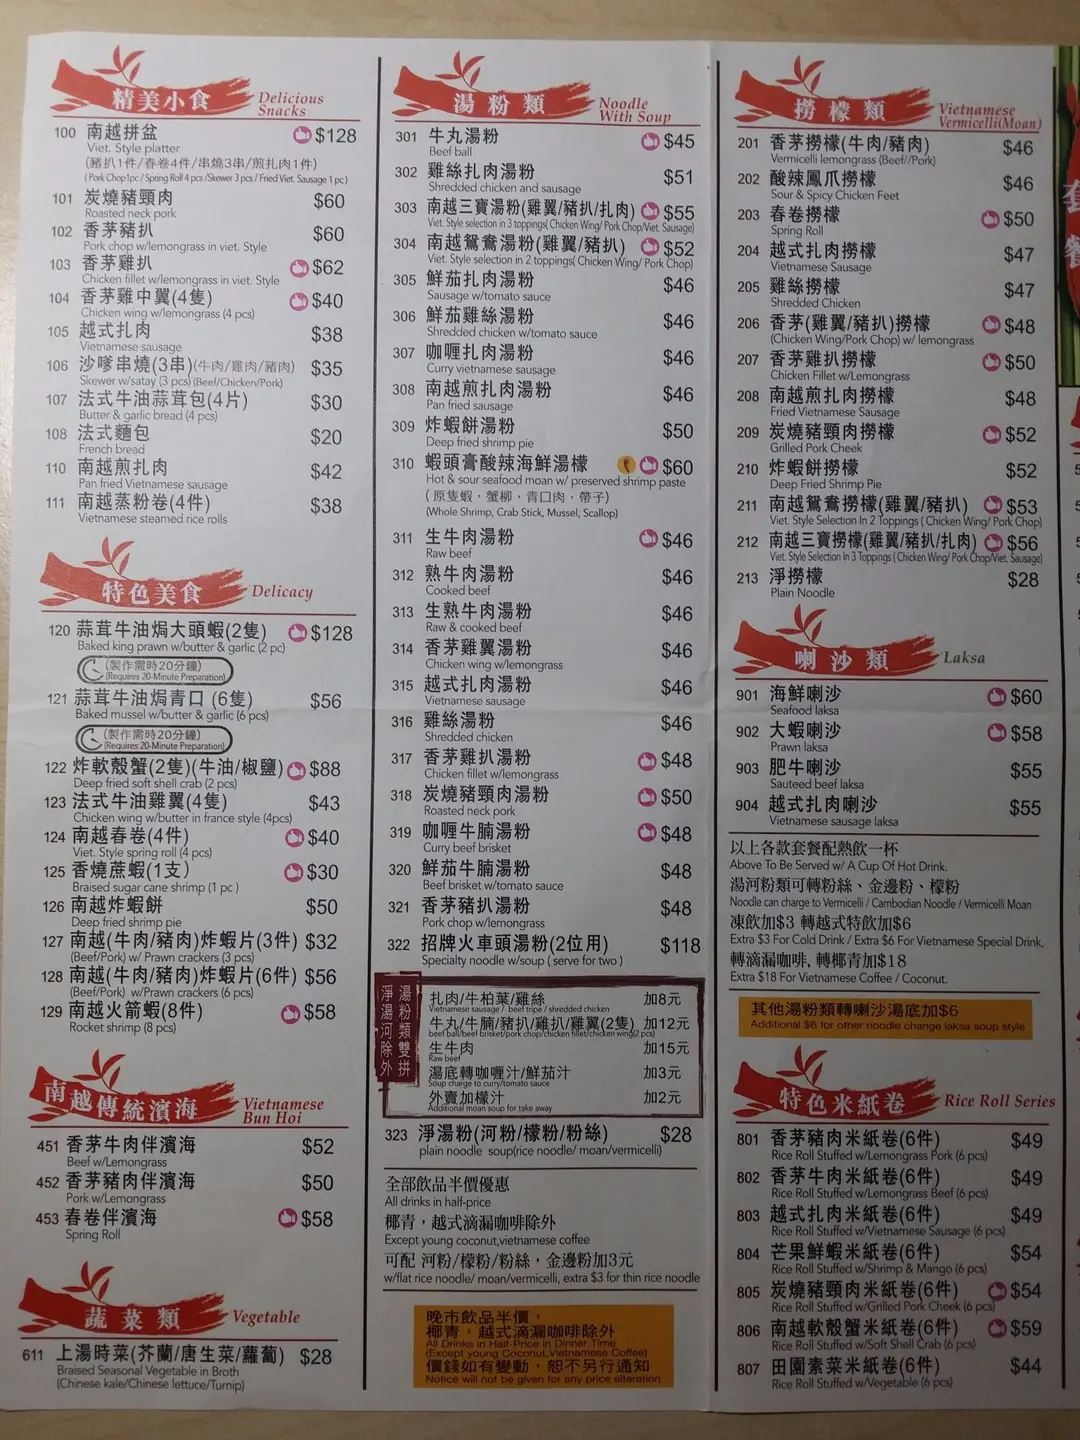 精美小食 Delicious Snacks
100 南越拼盆 $128
Viet. Style platter
(豬扒1件/春卷4件/串燒3串/煎扎肉1件)
(Pork Chop1pc / Spring Roll 4 pcs /Skewer 3 pcs / Fried Viet. Sausage 1 pc)
101 炭燒豬頸肉 $60
Roasted neck pork
102 香茅豬扒 $60
Pork chop w/lemongrass in viet. Style
103 香茅雞扒 $62
Chicken fillet w/lemongrass in viet. Style
104 香茅雞中翼(4隻) $40
Chicken wing w/lemongrass (4 pcs)
105 越式扎肉 $38
Vietnamese sausage
106 沙嗲串燒(3串)(牛肉/雞肉/豬肉) $35
Skewer w/satay (3 pcs) (Beef/Chicken/Pork)
107 法式牛油蒜茸包(4片) $30
Butter & garlic bread (4 pcs)
108 法式麵包 $20
French bread
110 南越煎扎肉 $42
Pan fried Vietnamese sausage
111 南越蒸粉卷(4件) $38
Vietnamese steamed rice rolls
特色美食 Delicacy
120 蒜茸牛油焗大頭蝦(2隻) $128
Baked king prawn w/butter & garlic (2 pc)
(製作需時20分鐘)
(Requires 20-Minute Preparation)
121 蒜茸牛油焗青口 (6隻) $56
Baked mussel w/butter & garlic (6 pcs)
(製作需時20分鐘)
(Requires 20-Minute Preparation)
122 炸軟殼蟹(2隻)(牛油/椒鹽) $88
Deep fried soft shell crab (2 pcs)
123 法式牛油雞翼(4隻) $43
Chicken wing w/butter in france style (4pcs)
124 南越春卷(4件) $40
Viet. Style spring roll (4 pcs)
125 香燒蔗蝦(1支) $30
Braised sugar cane shrimp (1 pc )
126 南越炸蝦餅 $50
Deep fried shrimp pie
127 南越(牛肉/豬肉)炸蝦片(3件) $32
(Beef/Pork) w/ Prawn crackers (3 pcs)
128 南越(牛肉/豬肉)炸蝦片(6件) $56
(Beef/Pork) w/Prawn crackers (6 pcs)
129 南越火箭蝦(8件) $58
Rocket shrimp (8 pcs)
南越傳統濱海 Vietnamese Bun Hoi
451 香茅牛肉伴濱海 $52
Beef w/Lemongrass
452 香茅豬肉伴濱海 $50
Pork w/Lemongrass
453 春卷伴濱海 $58
Spring Roll
蔬菜類 Vegetable
611 上湯時菜(芥蘭/唐生菜/蘿蔔) $28
Braised Seasonal Vegetable in Broth
(Chinese kale/Chinese lettuce/Turnip)
湯粉類 Noodle With Soup
301 牛丸湯粉 $45
Beef ball
302 雞絲扎肉湯粉 $51
Shredded chicken and sausage
303 南越三寶湯粉(雞翼/豬扒/扎肉) $55
Viet. Style selection in 3 toppings( Chicken Wing/ Pork Chop/Viet. Sausage)
304 南越鴛鴦湯粉(雞翼/豬扒) $52
Viet. Style selection in 2 toppings( Chicken Wing/ Pork Chop)
305 鮮茄扎肉湯粉 $46
Sausage w/tomato sauce
306 鮮茄雞絲湯粉 $46
Shredded chicken w/tomato sauce
307 咖喱扎肉湯粉 $46
Curry vietnamese sausage
308 南越煎扎肉湯粉 $46
Pan fried sausage
309 炸蝦餅湯粉 $50
Deep fried shrimp pie
310 蝦頭膏酸辣海鮮湯檬 $60
Hot & sour seafood moan w/ preserved shrimp paste
(原隻蝦，蟹柳，青口肉，帶子)
(Whole Shrimp, Crab Stick, Mussel, Scallop)
311 生牛肉湯粉 $46
Raw beef
312 熟牛肉湯粉 $46
Cooked beef
313 生熟牛肉湯粉 $46
Raw & cooked beef
314 香茅雞翼湯粉 $46
Chicken wing w/lemongrass
315 越式扎肉湯粉 $46
Vietnamese sausage
316 雞絲湯粉 $46
Shredded chicken
317 香茅雞扒湯粉 $48
Chicken fillet w/lemongrass
318 炭燒豬頸肉湯粉 $50
Roasted neck pork
319 咖喱牛腩湯粉 $48
Curry beef brisket
320 鮮茄牛腩湯粉 $48
Beef brisket w/tomato sauce
321 香茅豬扒湯粉 $48
Pork chop w/lemongrass
322 招牌火車頭湯粉(2位用) $118
Specialty noodle w/soup ( serve for two )
湯粉類雙拼
淨湯河除外
扎肉/牛柏葉/雞絲 加8元
Vietnamese sausage / beef tripe / shredded chicken
牛丸/牛腩/豬扒/雞扒/雞翼(2隻) 加12元
beef ball/beef brisket/pork chop/chicken fillet/chicken wing(2 pcs)
生牛肉 加15元
Raw beef
湯底轉咖喱汁/鮮茄汁 加3元
Soup charge to curry/tomato sauce
外賣加檬汁 加2元
Additional moan soup for take away
323 淨湯粉(河粉/檬粉/粉絲) $28
plain noodle soup(rice noodle/ moan/vermicelli)
全部飲品半價優惠
All drinks in half-price
椰青，越式滴漏咖啡除外
Except young coconut,vietnamese coffee
可配 河粉/檬粉/粉絲，金邊粉加3元
w/flat rice noodle/ moan/vermicelli, extra $3 for thin rice noodle
晚市飲品半價，
椰青，越式滴漏咖啡除外
All Drinks in Half-Price in Dinner Time
(Except young Coconut,Vietnamese Coffee)
價錢如有變動，恕不另行通知
Notice will not be given for any price alteration
撈檬類 Vietnamese Vermicelli(Moan)
201 香茅撈檬(牛肉/豬肉) $46
Vermicelli lemongrass (Beef//Pork)
202 酸辣鳳爪撈檬 $46
Sour & Spicy Chicken Feet
203 春卷撈檬 $50
Spring Roll
204 越式扎肉撈檬 $47
Vietnamese Sausage
205 雞絲撈檬 $47
Shredded Chicken
206 香茅(雞翼/豬扒)撈檬 $48
(Chicken Wing/Pork Chop) w/ lemongrass
207 香茅雞扒撈檬 $50
Chicken Fillet w/Lemongrass
208 南越煎扎肉撈檬 $48
Fried Vietnamese Sausage
209 炭燒豬頸肉撈檬 $52
Grilled Pork Cheek
210 炸蝦餅撈檬 $52
Deep Fried Shrimp Pie
211 南越鴛鴦撈檬(雞翼/豬扒) $53
Viet. Style Selection In 2 Toppings ( Chicken Wing/ Pork Chop)
212 南越三寶撈檬(雞翼/豬扒/扎肉) $56
Viet. Style Selection In 3 Toppings ( Chicken Wing/ Pork Chop/Viet. Sausage)
213 淨撈檬 $28
Plain Noodle
喇沙類 Laksa
901 海鮮喇沙 $60
Seafood laksa
902 大蝦喇沙 $58
Prawn laksa
903 肥牛喇沙 $55
Sauteed beef laksa
904 越式扎肉喇沙 $55
Vietnamese sausage laksa
以上各款套餐配熱飲一杯
Above To Be Served w/ A Cup Of Hot Drink.
湯河粉類可轉粉絲、金邊粉、檬粉
Noodle can charge to Vermicelli / Cambodian Noodle / Vermicelli Moan
凍飲加$3 轉越式特飲加$6
Extra $3 For Cold Drink / Extra $6 For Vietnamese Special Drink,
轉滴漏咖啡, 轉椰青加$18
Extra $18 For Vietnamese Coffee / Coconut.
其他湯粉類轉喇沙湯底加$6
Additional $6 for other noodle change laksa soup style
特色米紙卷 Rice Roll Series
801 香茅豬肉米紙卷(6件) $49
Rice Roll Stuffed w/Lemongrass Pork (6 pcs)
802 香茅牛肉米紙卷(6件) $49
Rice Roll Stuffed w/Lemongrass Beef (6 pcs)
803 越式扎肉米紙卷(6件) $49
Rice Roll Stuffed w/Vietnamese Sausage (6 pcs)
804 芒果鮮蝦米紙卷(6件) $54
Rice Roll Stuffed w/Shrimp & Mango (6 pcs)
805 炭燒豬頸肉米紙卷(6件) $54
Rice Roll Stuffed w/Grilled Pork Cheek (6 pcs)
806 南越軟殼蟹米紙卷(6件) $59
Rice Roll Stuffed w/Soft Shell Crab (6 pcs)
807 田園素菜米紙卷(6件) $44
Rice Roll Stuffed w/Vegetable (6 pcs)